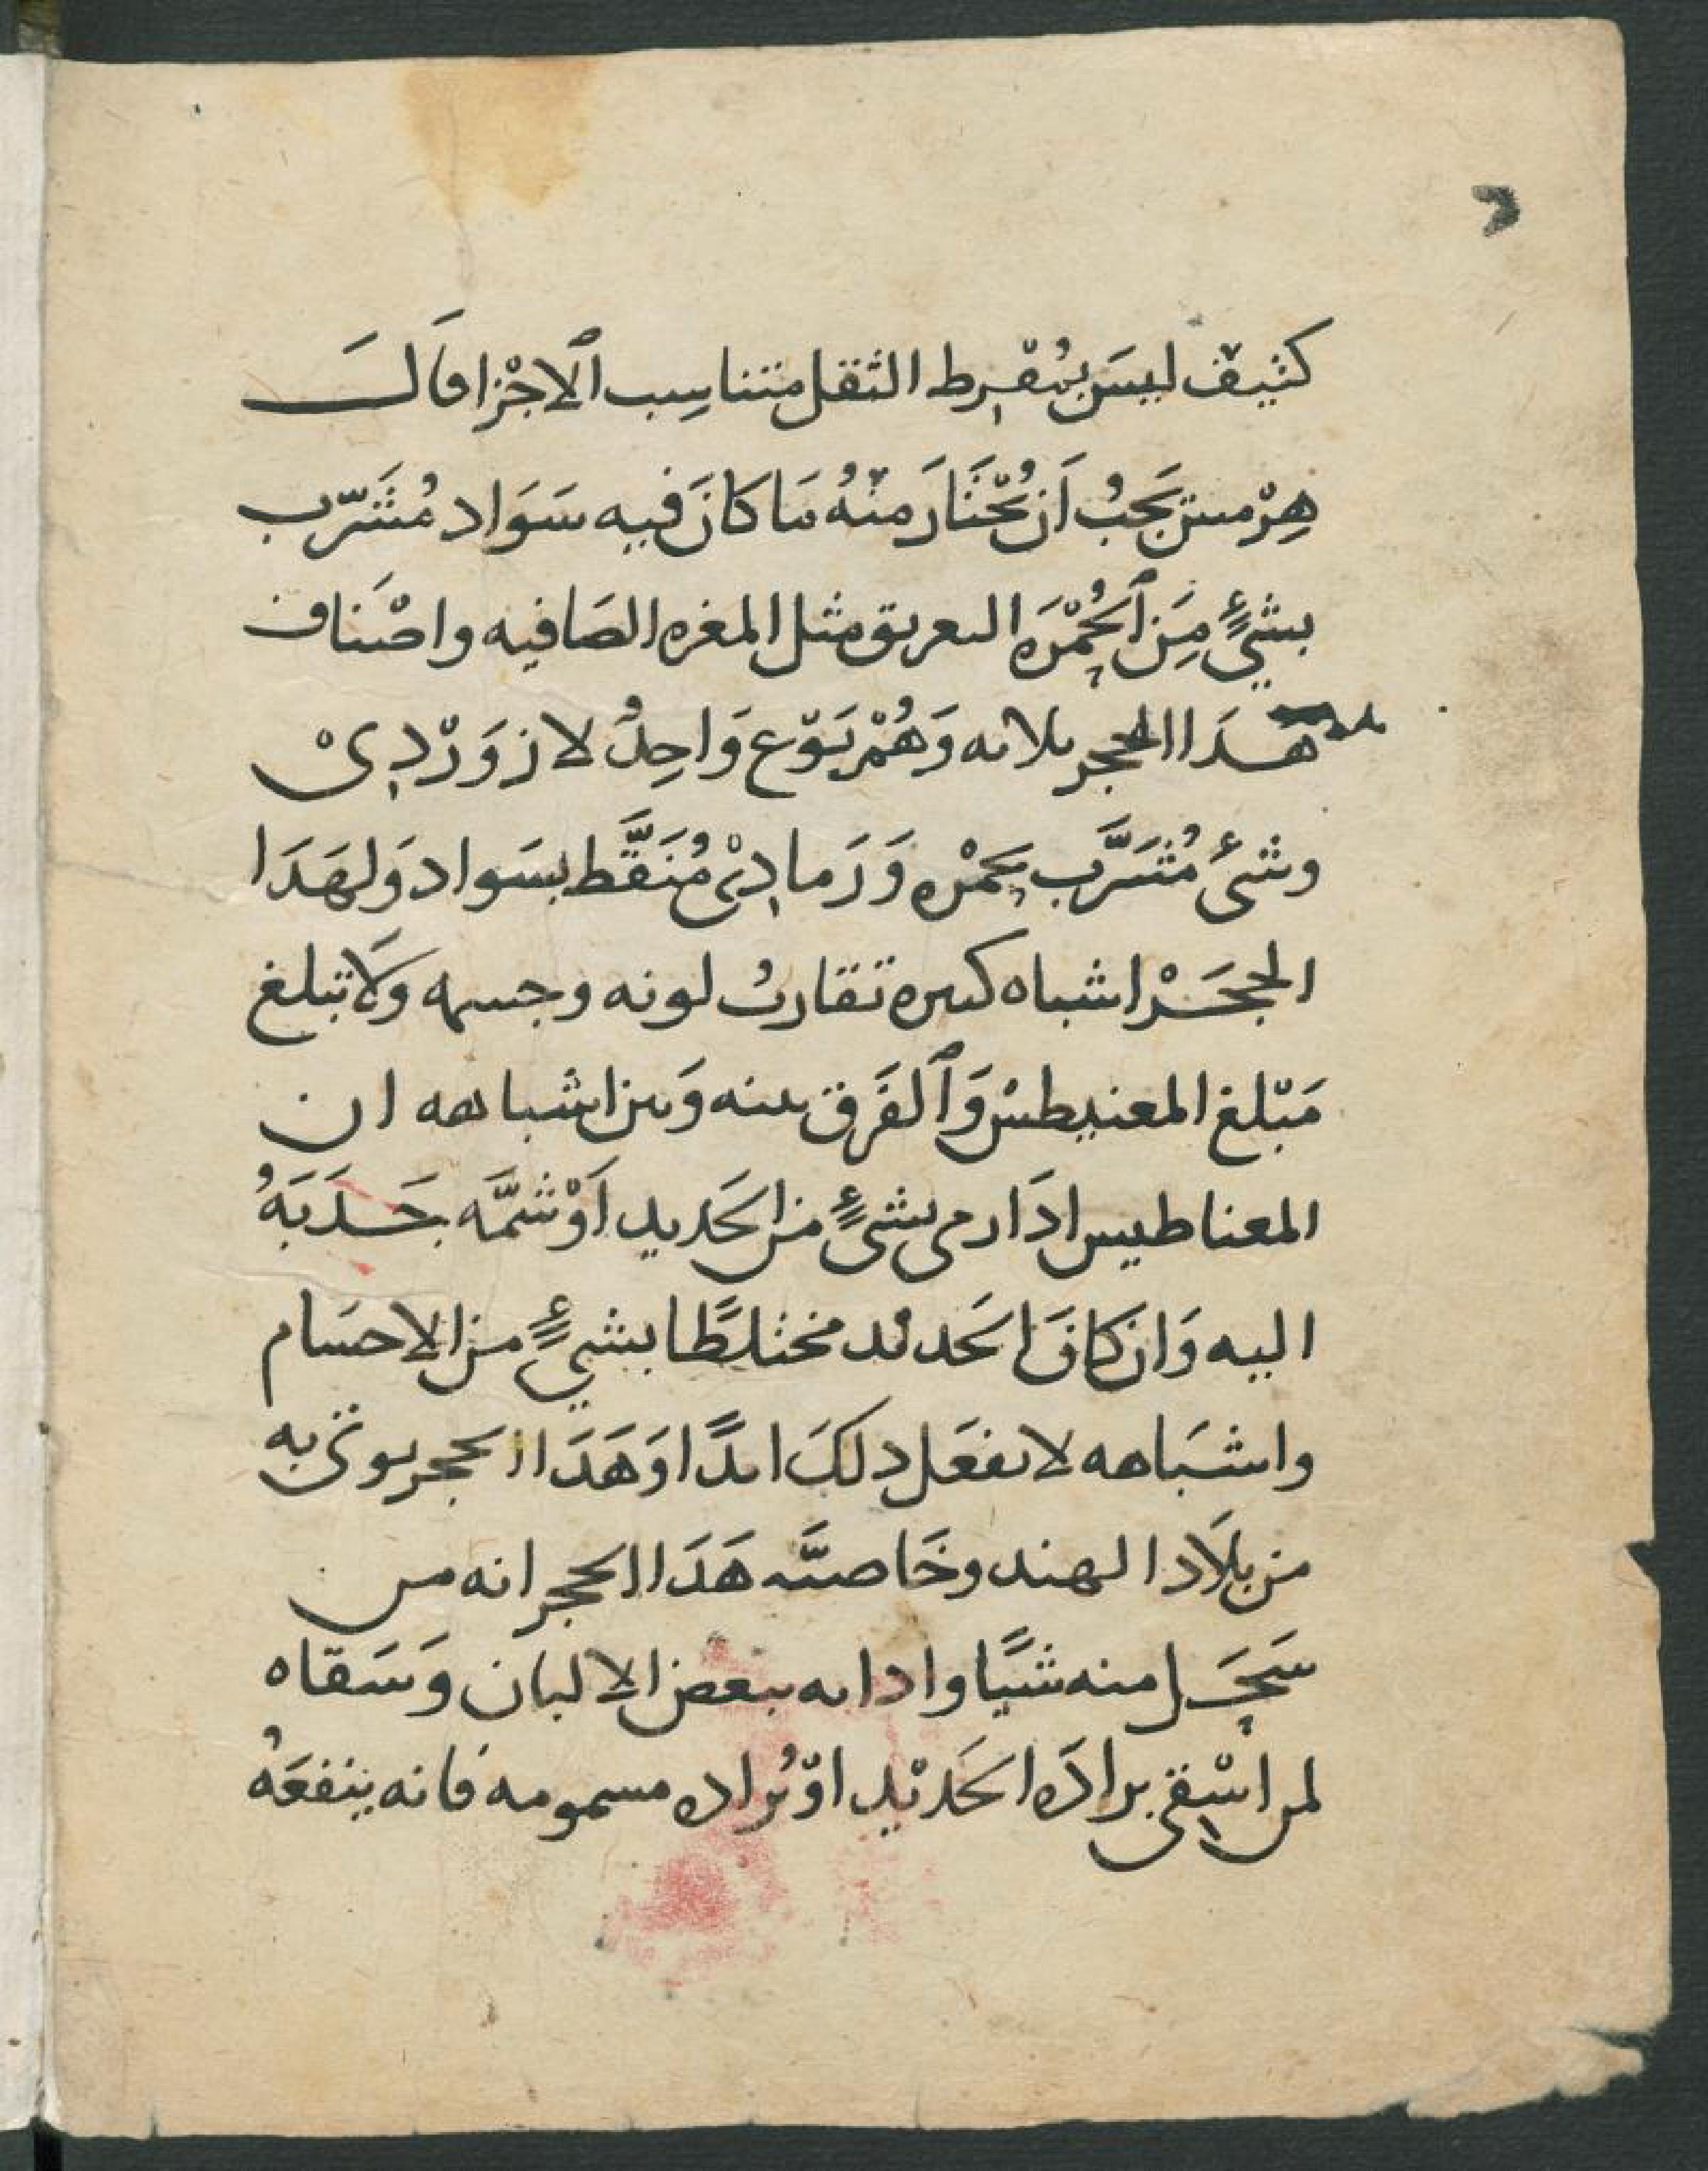 ٢
كثيف ليسَ بمُفرِط الثقل متناسِب ٱلاجْزا قالَ
هِرْمس يَجبُ اَن يُخْتَارَ منْهُ مَا كانَ فيه سَوَاد مُشَرّب
بشيءٍ مِنَ ٱلحُمْرَه العريق مثل المغره الصَافيه واصْنَاف
هـذَا الحجر ثلاثه وَهُمْ نَوْع وَاحِدُ لازوَرْدِىْ
وشىءٌ مُشَرَّب بحمْره وَرَمادِىْ مُنَقَّط بسَواد وَلهَذَا
الحجَـرْ اشباه كثيره تقاربُ لونه وجسمه وَلَا تبلغ
مَبْلغ المغنيطسْ وَٱلفَرَق بينه وَبين اشباهه ان
المغناطيس اذَا رمى بشىءٍ من الحَديد اَوْ شمَّه جَـذَبَهُ
اليه وَان كانَ الحَديد مختلطًا بشيءٍ من الاجسَام
واشبَاهه لا يفعَل ذلكَ ابدًا وَهَذَا الحجر يوتى به
من بلَاد الهند وخَاصيَّه هَذَا الحجر انه من
سَحَـل منه شيًا واذابه ببعض الالبان وَسَقاه
لمن اسْقى برادَه الحَديْد اوْ بُراده مسمومه فانه ينفعَهُ